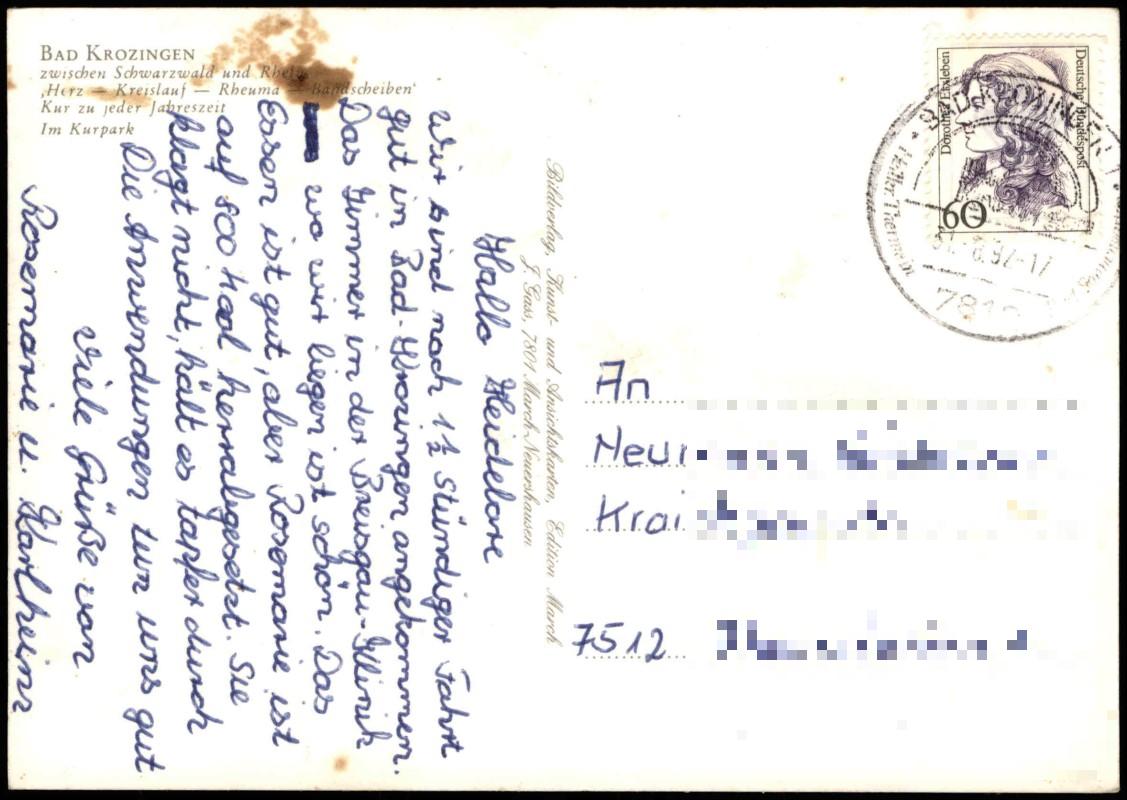 BAD KROZINGEN
zwischen Schwarzwald und Rhein
‚Herz — Kreislauf — Rheuma — Bandscheiben‘
Kur zu jeder Jahreszeit
Im Kurpark
Hallo Heidelore
Wir sind nach 1½ stündiger Fahrt
gut in Bad-Krozingen angekommen.
Das Zimmer in der Breisgau-Klinik
wo wir liegen ist schön. Das
Essen ist gut, aber Rosemarie ist
auf 800 kcal herrabgesetzt. Sie
klagt nicht, hält es tapfer durch
Die Anwendungen tun uns gut
Viele Grüße von
Rosemarie u. Karlheinz
Bildverlag, Kunst- und Ansichtskarten, Edition March
J. Gass, 7801 March-Neuershausen
Dorothea Erxleben
Deutsche Bundespost
60
BAD KROZINGEN 1
92-17
An
Neu
Krai
7512